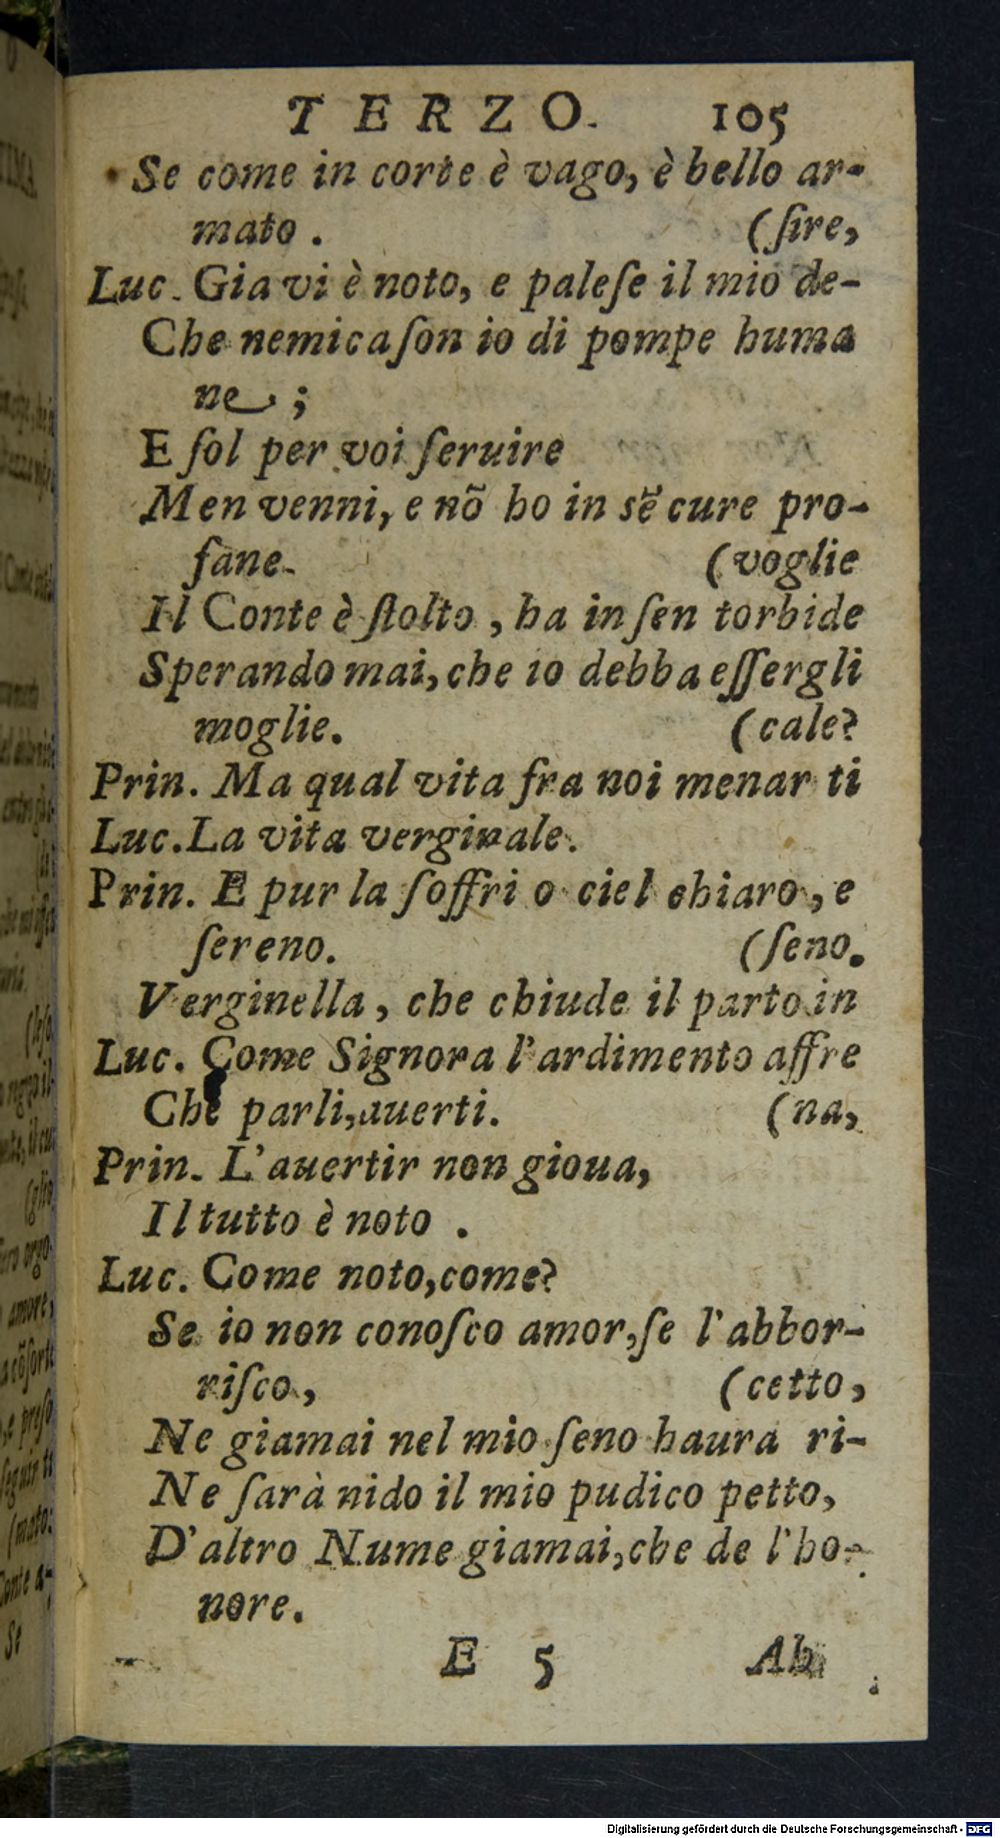 TERZO. 105
Se come in corte è vago, è bello ar-
mato . (ſire,
Luc. Gia vi è noto, e paleſe il mio de-
Che nemica ſon io di pompe huma
ne ;
E ſol per voi ſeruire
Men venni, e nõ ho in sẽ cure pro-
fane. (voglie
Il Conte è ſtolto , ha in ſen torbide
Sperando mai, che io debba eſſergli
moglie. (cale?
Prin. Ma qual vita fra noi menar ti
Luc. La vita verginale.
Prin. E pur la ſoffri o ciel chiaro, e
ſereno. (ſeno.
Verginella, che chiude il parto in
Luc. Come Signora l'ardimento affre
Che parli, auerti. (na,
Prin. L'auertir non gioua,
Il tutto è noto .
Luc. Come noto, come?
Se io non conoſco amor, ſe l'abbor-
riſco, (cetto,
Ne giamai nel mio ſeno haura ri-
Ne ſarà nido il mio pudico petto,
D'altro Nume giamai, che de l'ho-
nore.
E 5 Ah
Digitalisierung gefördert durch die Deutsche Forschungsgemeinschaft - DFG